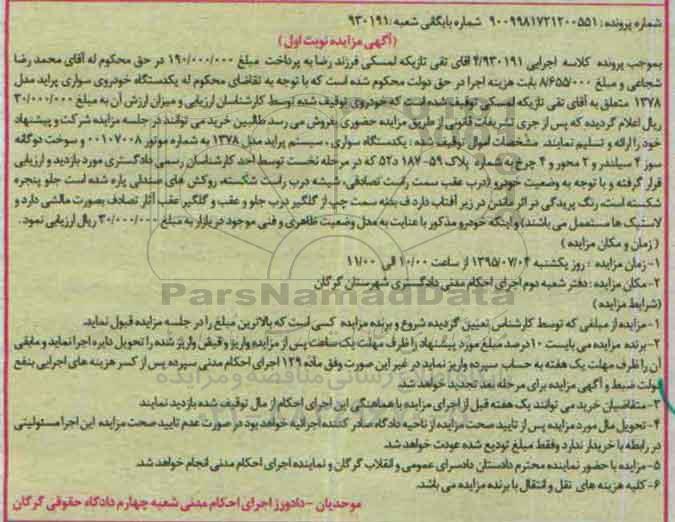 شماره پرونده : ۹۰۰۹۹۸۱۷۲۱۲۰۰۵۵۱ شماره بایگانی شعبه : ۹۳۰۱۹۱
(آگهی مزایده نوبت اول)
بموجب پرونده کلاسه اجرایی ۴/۹۳۰۱۹۱ اقای تقی تازیکه لمسکی فرزند رضا به پرداخت مبلغ ۱۹۰/۰۰۰/۰۰۰ در حق محکوم له آقای محمد رضا
شجاعی و مبلغ ۸/۶۵۵/۰۰۰ بابت هزینه اجرا در حق دولت محکوم شده است که با توجه به تقاضای محکوم له یکدستگاه خودروی سواری پراید مدل
۱۳۷۸ متعلق به آقای تقی تازیکه لمسکی توقیف شده است که خودروی توقیف شده توسط کارشناسان ارزیابی و میزان ارزش آن به مبلغ ۳۰/۰۰۰/۰۰۰
ریال اعلام گردیده که پس از جری تشریفات قانونی از طریق مزایده حضوری بفروش می رسد طالبین خرید می توانند در جلسه مزایده شرکت و پیشنهاد
خود را ارائه و تسلیم نمایند. مشخصات اموال توقیف شده : یکدستگاه سواری ، سیستم پراید مدل ۱۳۷۸ به شماره موتور ۰۰۱۰۷۰۰۸ و سوخت دوگانه
سوز ۴ سیلندر و ۲ محور و ۴ چرخ به شماره پلاک ۵۹-۱۸۷ د۵۲ که در مرحله نخست توسط احد کارشناسان رسمی دادگستری مورد بازدید و ارزیابی
قرار گرفته و با توجه به وضعیت خودرو (درب عقب سمت راست تصادفی، شیشه درب راست شکسته، روکش های صندلی پاره شده است جلو پنجره
شکسته است، رنگ پریدگی در اثر ماندن در زیر آفتاب دارد ف بدنه سمت چپ از گلگیر درب جلو و عقب و گلگیر عقب آثار تصادف بصورت مالشی دارد و
لاستیک ها مستعمل می باشند) و اینکه خودرو مذکور با عنایت به مدل وضعیت ظاهری و فنی موجود در بازار به مبلغ ۳۰/۰۰۰/۰۰۰ ریال ارزیابی نمود.
( زمان و مکان مزایده )
۱- زمان مزایده : روز یکشنبه ۱۳۹۵/۰۷/۰۴ از ساعت ۱۰/۰۰ الی ۱۱/۰۰
۲-مکان مزایده : دفتر شعبه دوم اجرای احکام مدنی دادگستری شهرستان گرگان
(شرایط مزایده )
۱-مزایده از مبلغی که توسط کارشناس تعیین گردیده شروع و برنده مزایده کسی است که بالاترین مبلغ را در جلسه مزایده قبول نماید.
۲-برنده مزایده می بایست ۱۰درصد مبلغ مورد پیشنهاد را ظرف مهلت یک ساعت پس از مزایده واریز و قبض واریز شده را تحویل دایره اجرا نماید و مابقی
آن را ظرف مهلت یک هفته به حساب سپرده واریز نماید در غیر این صورت وفق ماده ۱۲۹ اجرای احکام مدنی سپرده پس از کسر هزینه های اجرایی بنفع
دولت ضبط و آگهی مزایده برای مرحله بعد تجدید خواهد شد.
۳-متقاضیان خرید می توانند یک هفته قبل از اجرای مزایده با هماهنگی این اجرای احکام از مال توقیف شده بازدید نمایند
۴-تحویل مال مورد مزایده پس از تایید صحت مزایده از ناحیه دادگاه صادر کننده اجرائیه خواهد بود در صورت عدم تایید صحت مزایده این اجرا مسئولیتی
در رابطه با خریدار ندارد وفقط مبلغ تودیع شده عودت خواهد شد.
۵-مزایده با حضور نماینده محترم دادستان دادسرای عمومی و انقلاب گرگان و نماینده اجرای احکام مدنی انجام خواهد شد.
۶-کلیه هزینه های نقل و انتقال با برنده مزایده می باشد.
موحدیان -دادورز اجرای احکام مدنی شعبه چهارم دادگاه حقوقی گرگان
ParsNamadData